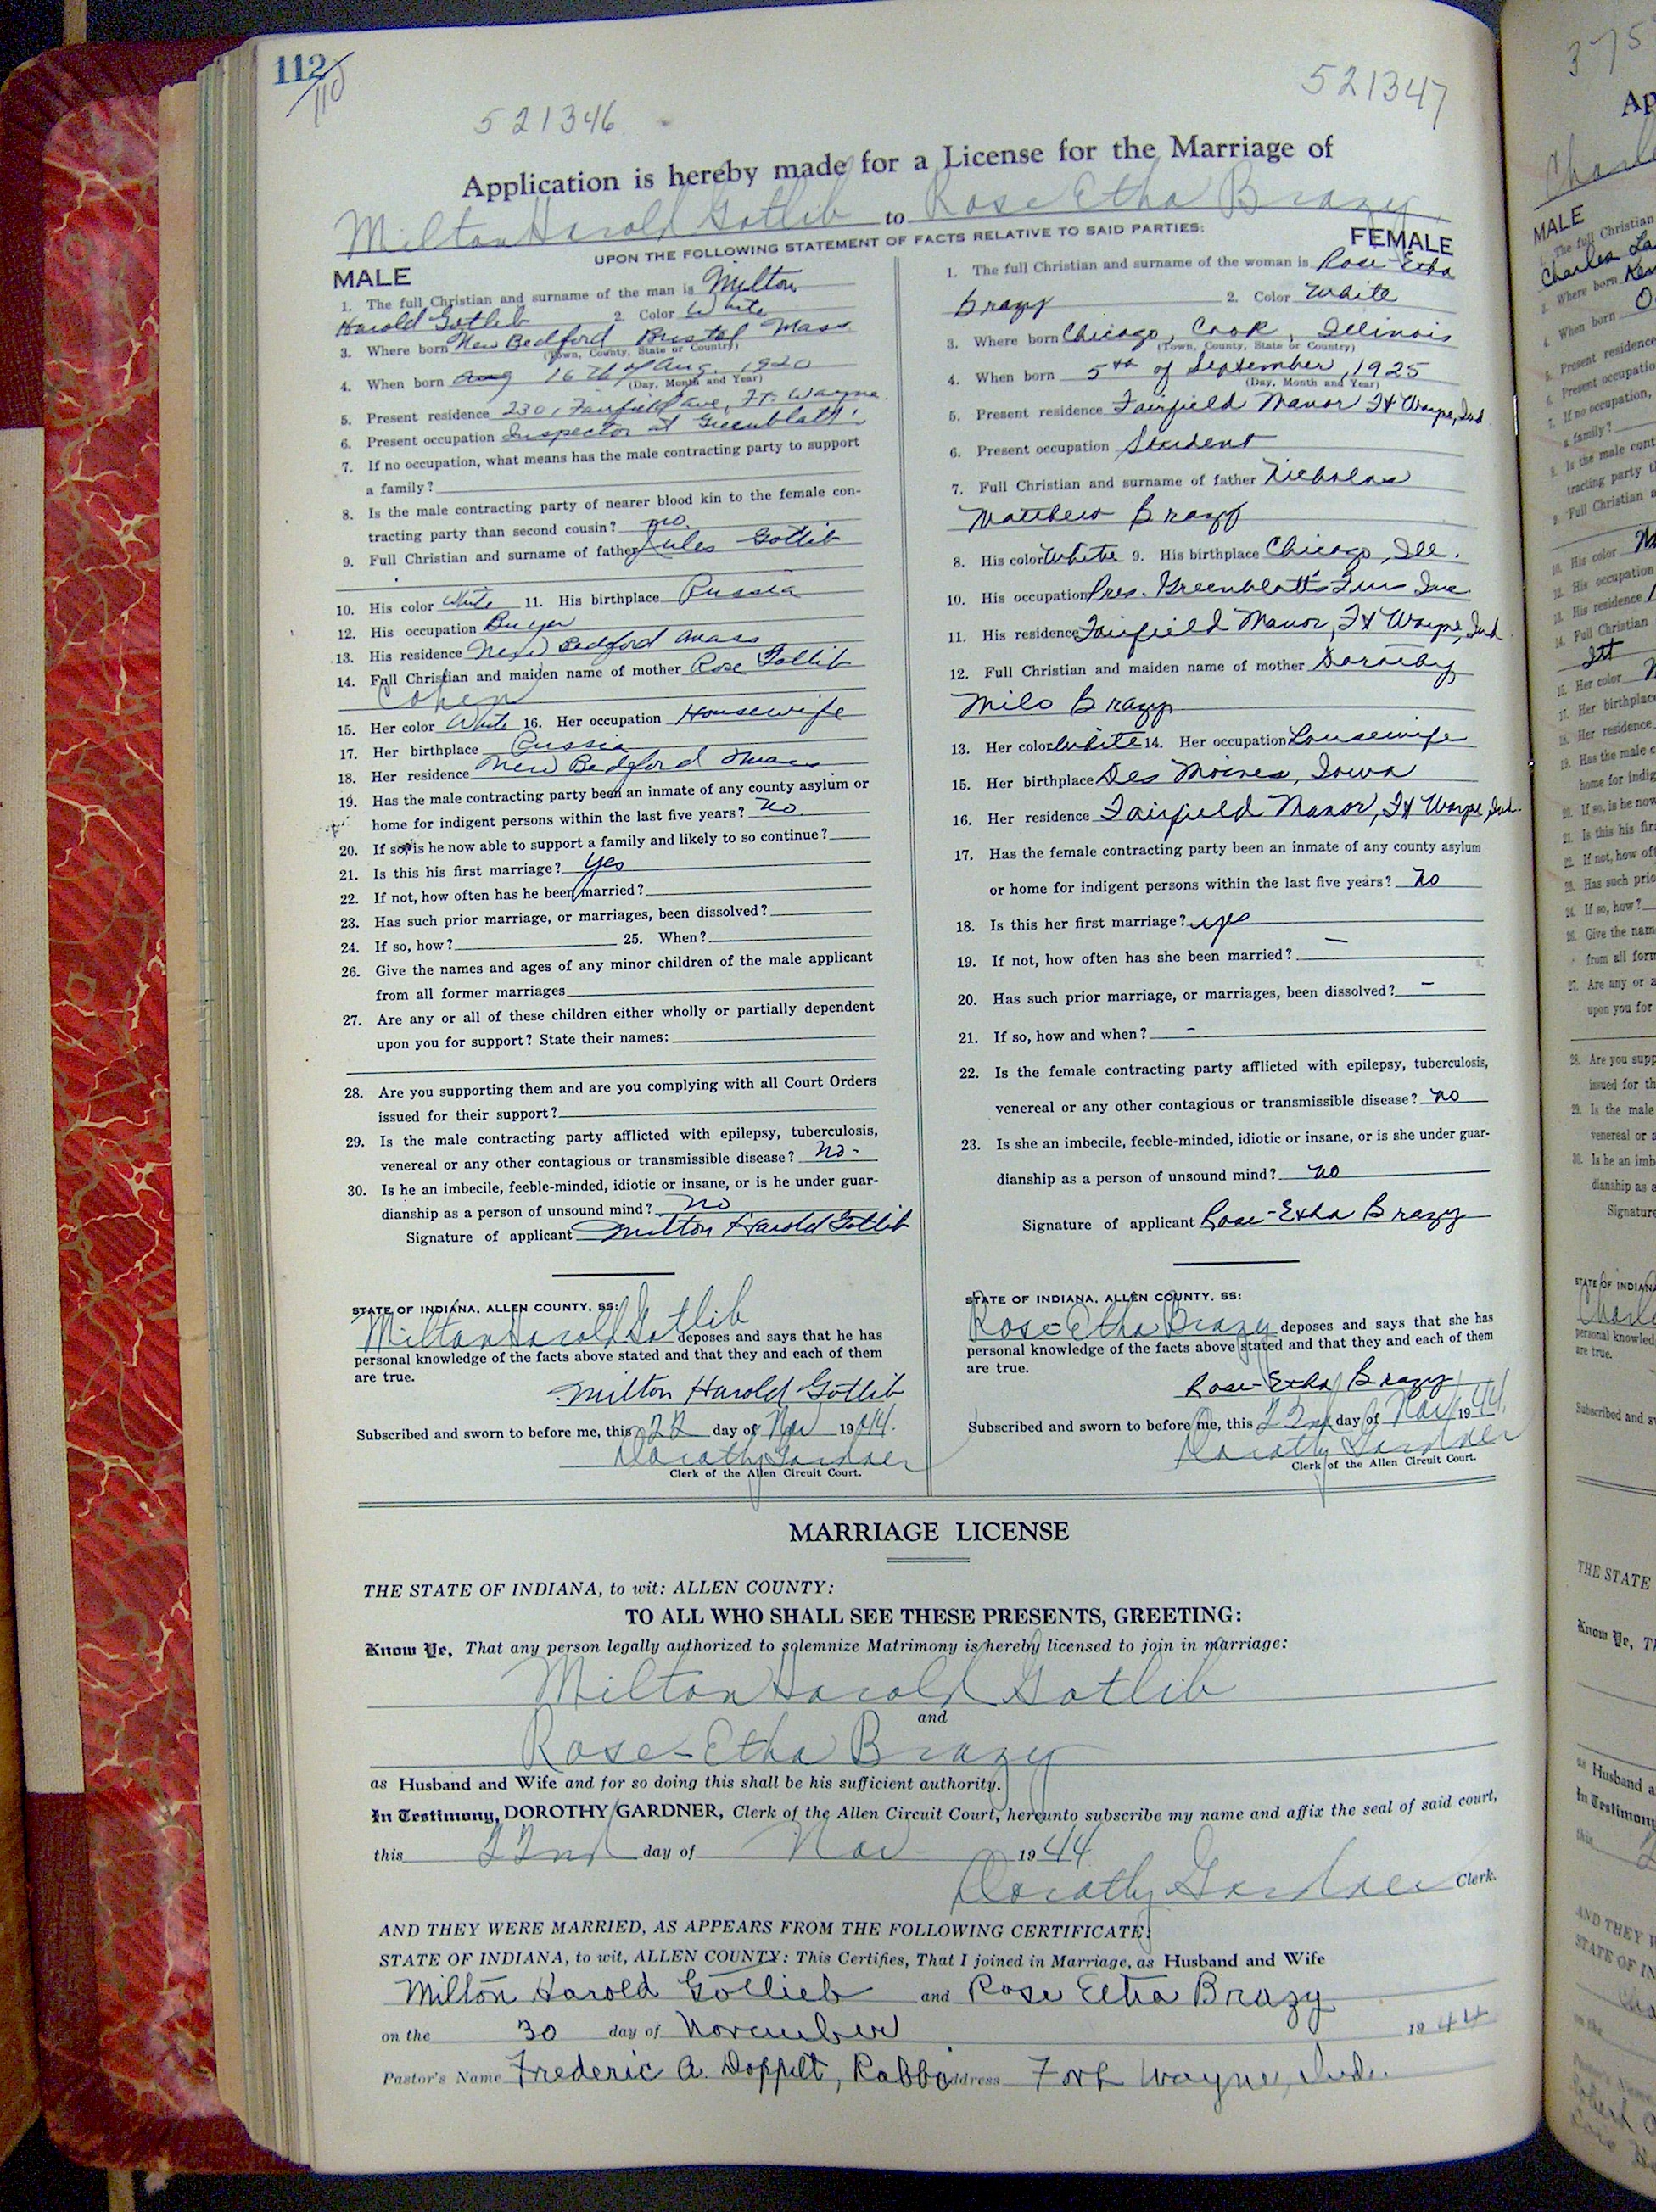 112
110
521346
521347
Application is hereby made for a License for the Marriage of
Milton Harold Gotlib to Rose Etha Brazy
UPON THE FOLLOWING STATEMENT OF FACTS RELATIVE TO SAID PARTIES:
MALE
1. The full Christian and surname of the man is Milton
Harold Gotlib 2. Color White
3. Where born New Bedford Bristol Mass
(Town, County, State or Country)
4. When born Aug 16th of Aug. 1920
(Day, Month and Year)
5. Present residence 2301 Fairfield Ave, Ft. Wayne
6. Present occupation Inspector at Greenblatt's
7. If no occupation, what means has the male contracting party to support
a family?
8. Is the male contracting party of nearer blood kin to the female con-
tracting party than second cousin? no.
9. Full Christian and surname of father Jules Gotlib
10. His color White 11. His birthplace Russia
12. His occupation Buyer
13. His residence New Bedford Mass
14. Full Christian and maiden name of mother Rose Gotlib
Cohen
15. Her color White 16. Her occupation Housewife
17. Her birthplace Russia
18. Her residence New Bedford Mass
19. Has the male contracting party been an inmate of any county asylum or
home for indigent persons within the last five years? no
20. If so, is he now able to support a family and likely to so continue?
21. Is this his first marriage? yes
22. If not, how often has he been married?
23. Has such prior marriage, or marriages, been dissolved?
24. If so, how? 25. When?
26. Give the names and ages of any minor children of the male applicant
from all former marriages
27. Are any or all of these children either wholly or partially dependent
upon you for support? State their names:
28. Are you supporting them and are you complying with all Court Orders
issued for their support?
29. Is the male contracting party afflicted with epilepsy, tuberculosis,
venereal or any other contagious or transmissible disease? no.
30. Is he an imbecile, feeble-minded, idiotic or insane, or is he under guar-
dianship as a person of unsound mind? no
Signature of applicant Milton Harold Gotlib
STATE OF INDIANA, ALLEN COUNTY, SS:
Milton Harold Gotlib deposes and says that he has
personal knowledge of the facts above stated and that they and each of them
are true.
Milton Harold Gotlib
Subscribed and sworn to before me, this 22 day of Nov 1944.
Dorothy Gardner
Clerk of the Allen Circuit Court.
FEMALE
1. The full Christian and surname of the woman is Rose-Etha
Brazy 2. Color White
3. Where born Chicago, Cook, Illinois
(Town, County, State or Country)
4. When born 5th of September, 1925
(Day, Month and Year)
5. Present residence Fairfield Manor Ft Wayne, Ind
6. Present occupation Student
7. Full Christian and surname of father Nicholas
Matthew Brazy
8. His color White 9. His birthplace Chicago, Ill.
10. His occupation Pres. Greenblatt's Furs Inc
11. His residence Fairfield Manor, Ft Wayne, Ind.
12. Full Christian and maiden name of mother Dorothy
Milo Brazy
13. Her color White 14. Her occupation Housewife
15. Her birthplace Des Moines, Iowa
16. Her residence Fairfield Manor, Ft Wayne, Ind.
17. Has the female contracting party been an inmate of any county asylum
or home for indigent persons within the last five years? no
18. Is this her first marriage? yes
19. If not, how often has she been married? —
20. Has such prior marriage, or marriages, been dissolved? -
21. If so, how and when? -
22. Is the female contracting party afflicted with epilepsy, tuberculosis,
venereal or any other contagious or transmissible disease? no
23. Is she an imbecile, feeble-minded, idiotic or insane, or is she under guar-
dianship as a person of unsound mind? no
Signature of applicant Rose-Etha Brazy
STATE OF INDIANA, ALLEN COUNTY, SS:
Rose-Etha Brazy deposes and says that she has
personal knowledge of the facts above stated and that they and each of them
are true.
Rose-Etha Brazy
Subscribed and sworn to before me, this 22nd day of Nov 1944.
Dorothy Gardner
Clerk of the Allen Circuit Court.
MARRIAGE LICENSE
THE STATE OF INDIANA, to wit: ALLEN COUNTY:
TO ALL WHO SHALL SEE THESE PRESENTS, GREETING:
Know Ye, That any person legally authorized to solemnize Matrimony is hereby licensed to join in marriage:
Milton Harold Gotlib
and
Rose-Etha Brazy
as Husband and Wife and for so doing this shall be his sufficient authority.
In Testimony, DOROTHY GARDNER, Clerk of the Allen Circuit Court, hereunto subscribe my name and affix the seal of said court,
this 22nd day of Nov 1944
Dorothy Gardner Clerk.
AND THEY WERE MARRIED, AS APPEARS FROM THE FOLLOWING CERTIFICATE:
STATE OF INDIANA, to wit, ALLEN COUNTY: This Certifies, That I joined in Marriage, as Husband and Wife
Milton Harold Gotlieb and Rose Etta Brazy
on the 30 day of November 1944
Pastor's Name Frederic A. Doppelt, Rabbi Address Fort Wayne, Ind.